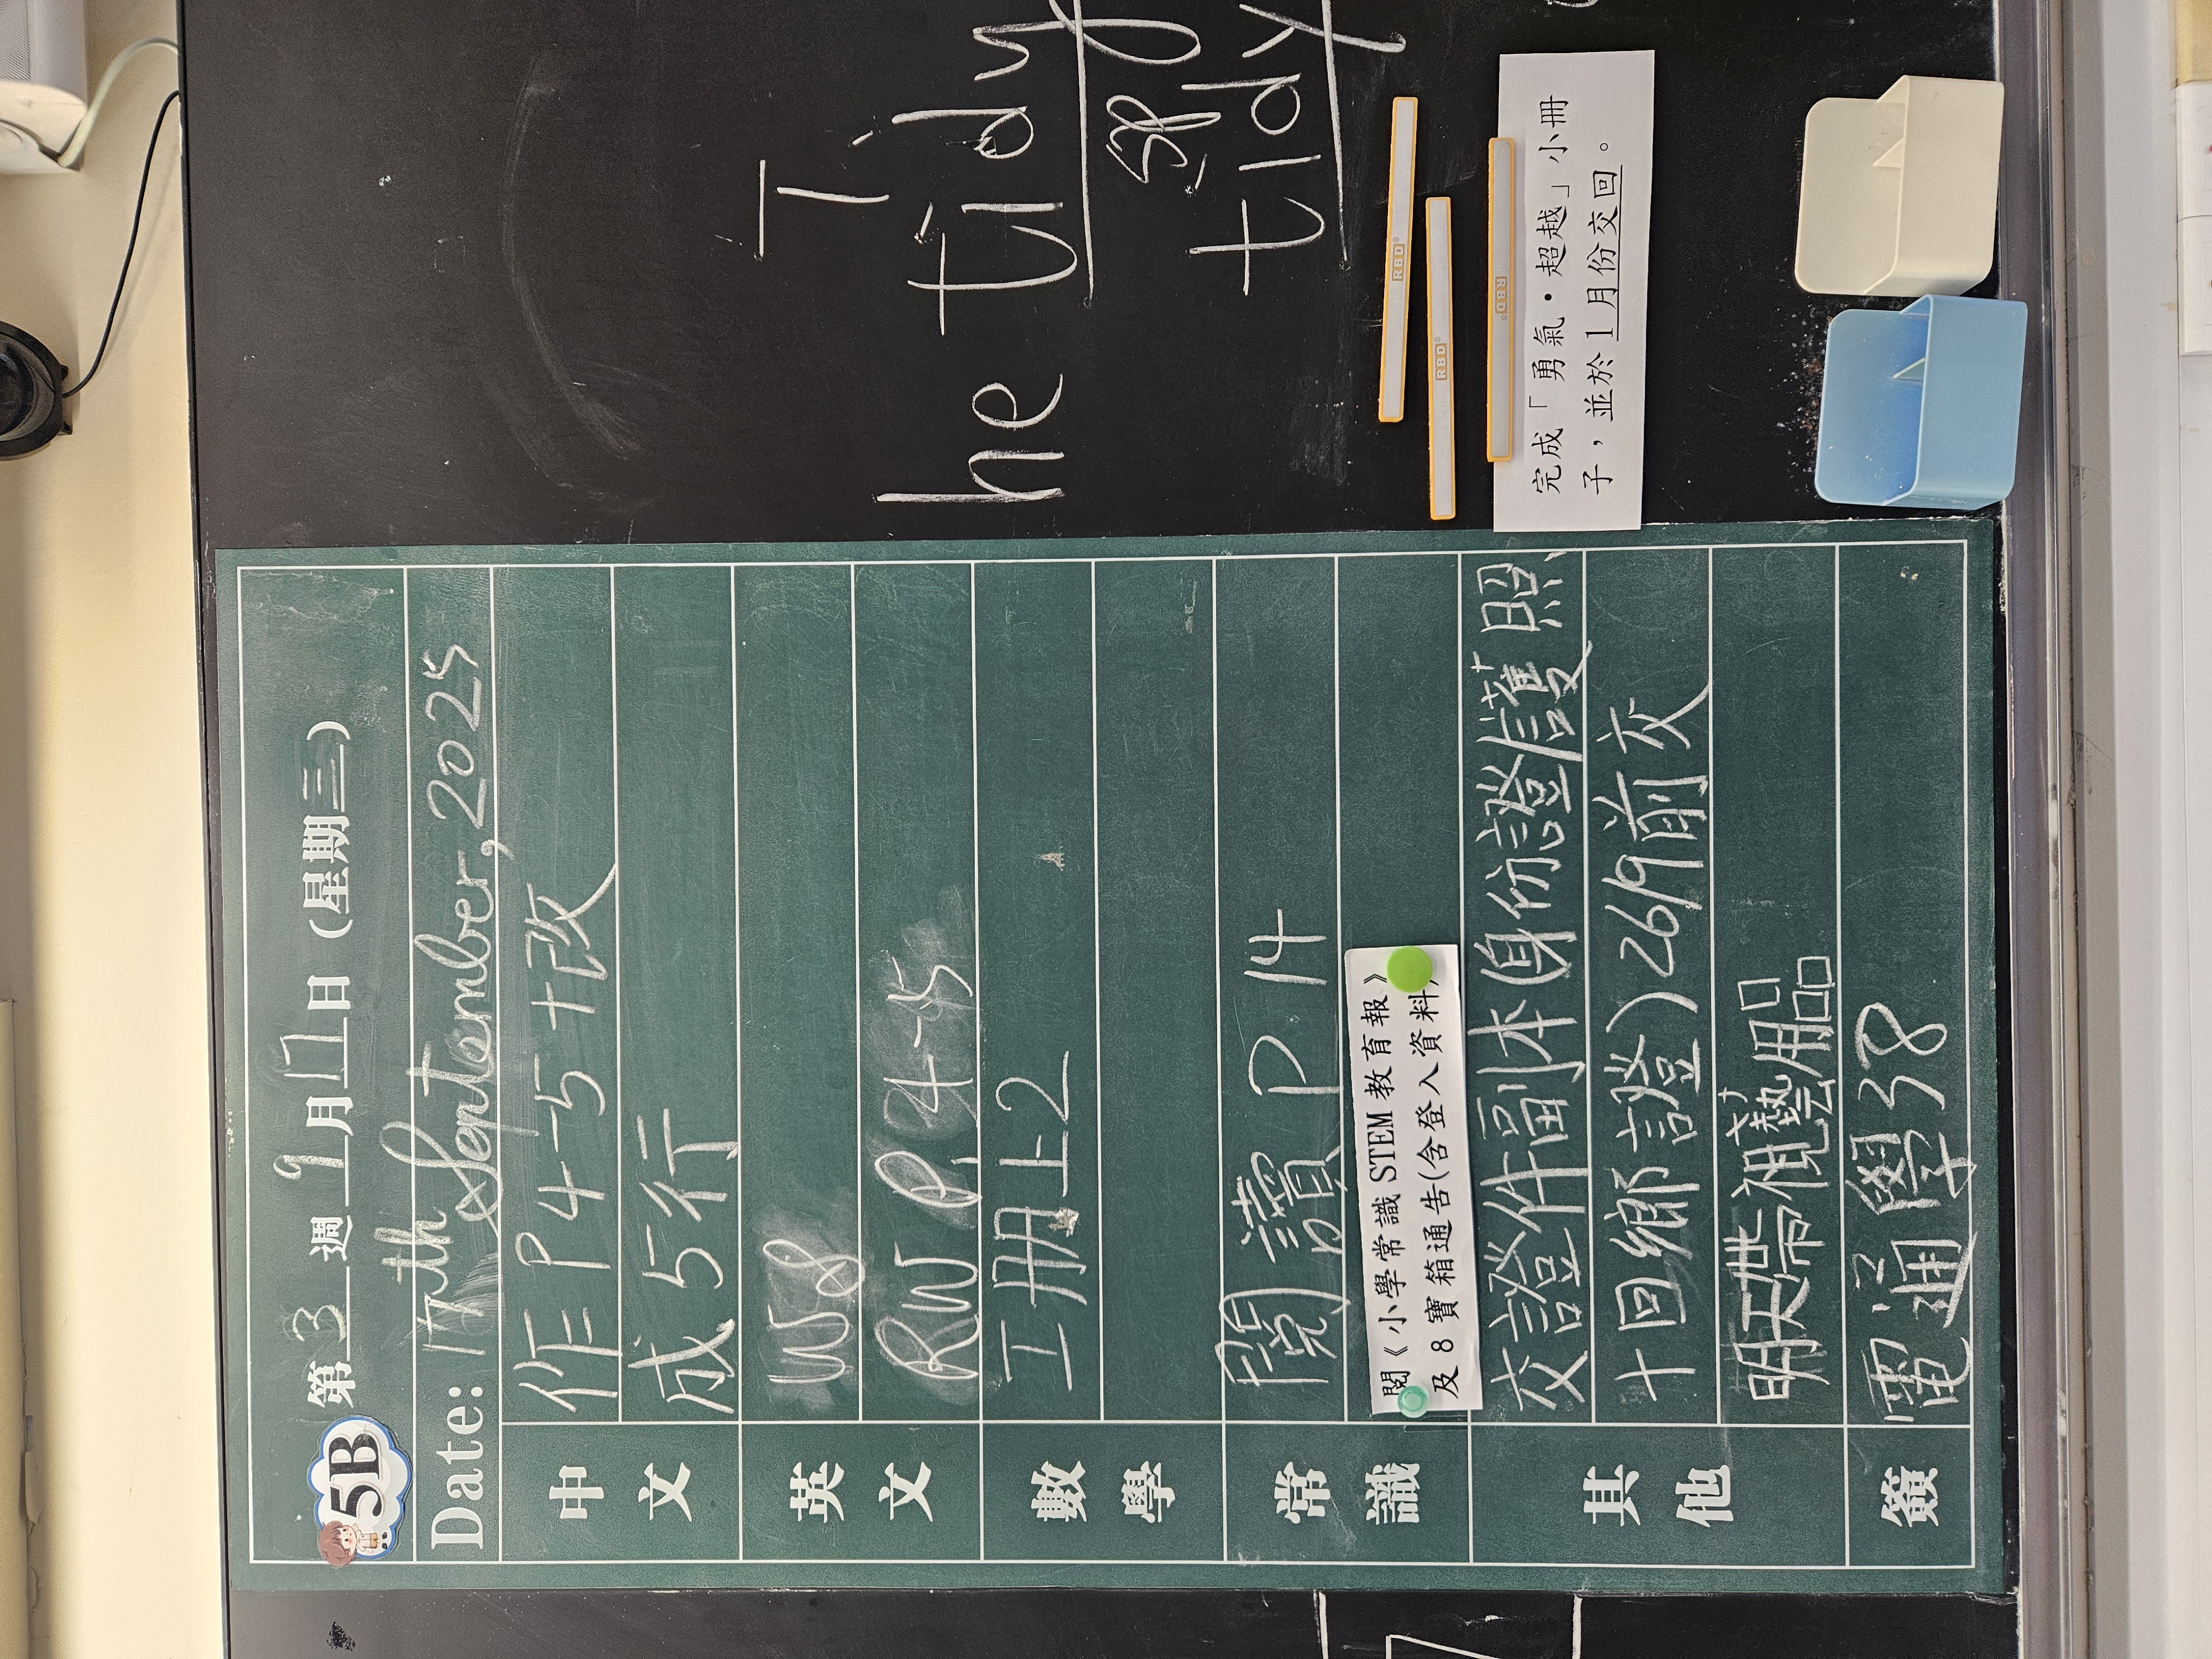 5B
第 3 週 9 月 17 日 (星期三)
Date: 17th September, 2025
中文
作 P 4-5 + 改
成 5 行
英文
WS
RW P.
數學
工冊 上 2
常識
閱讀 P 14
閱《小學常識 STEM 教育報》
及 8 寶箱通告(含登入資料)
其他
交證件副本(身份證/護照
+ 回鄉證) 26/9 前交
明天帶視藝用品
簽
電通學 38
T
he tidy
sp
tidy
RBD®
RBD®
RBD®
完成「勇氣·超越」小冊
子,並於 1 月份交回。